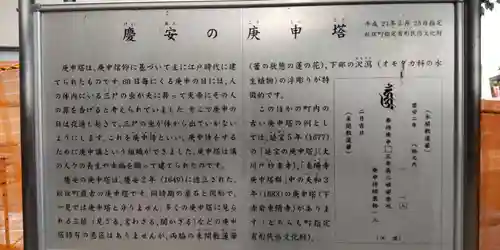 慶安の庚申塔
けい あん こう しん とう
平成21年2月25日指定
松伏町指定有形民俗文化財
庚申塔は、庚申信仰に基づいて主に江戸時代に建
てられたものです。60日毎にくる庚申の日には、人
の体内にいる三尸の虫が天に昇って天帝にその人
の罪を告げると考えられていました。
ようにします。これを庚申待といい、庚申待をする
ために庚申講という組織ができました。庚申塔は講
の人々の長生や幸福を願って建てられたのです。
慶安の庚申塔は、慶安2年(1649)に造立された、
松伏町最古の庚申塔です。同時期の墓石と同形で、
一見では庚申塔と分りません。多くの庚申塔に見ら
れる三猿(見ざる、言わざる、聞かざる)などの庚申
塔特有の意匠はありませんが、両脇の未開敷蓮華
(蕾の状態の蓮の花)、下部の沢瀉(オモダカ科の水
生植物)の浮彫りが特
徴的です。
このほかの町内の
古い庚申塔の例とし
ては、延宝5年(1677)
の「延宝の庚申塔」(大
庚申塔群」中の天和3
年(1683)の庚申塔(下
有形民俗文化財)。
(未開敷蓮華)
慶安二年
二月吉日
(未開敷蓮華)